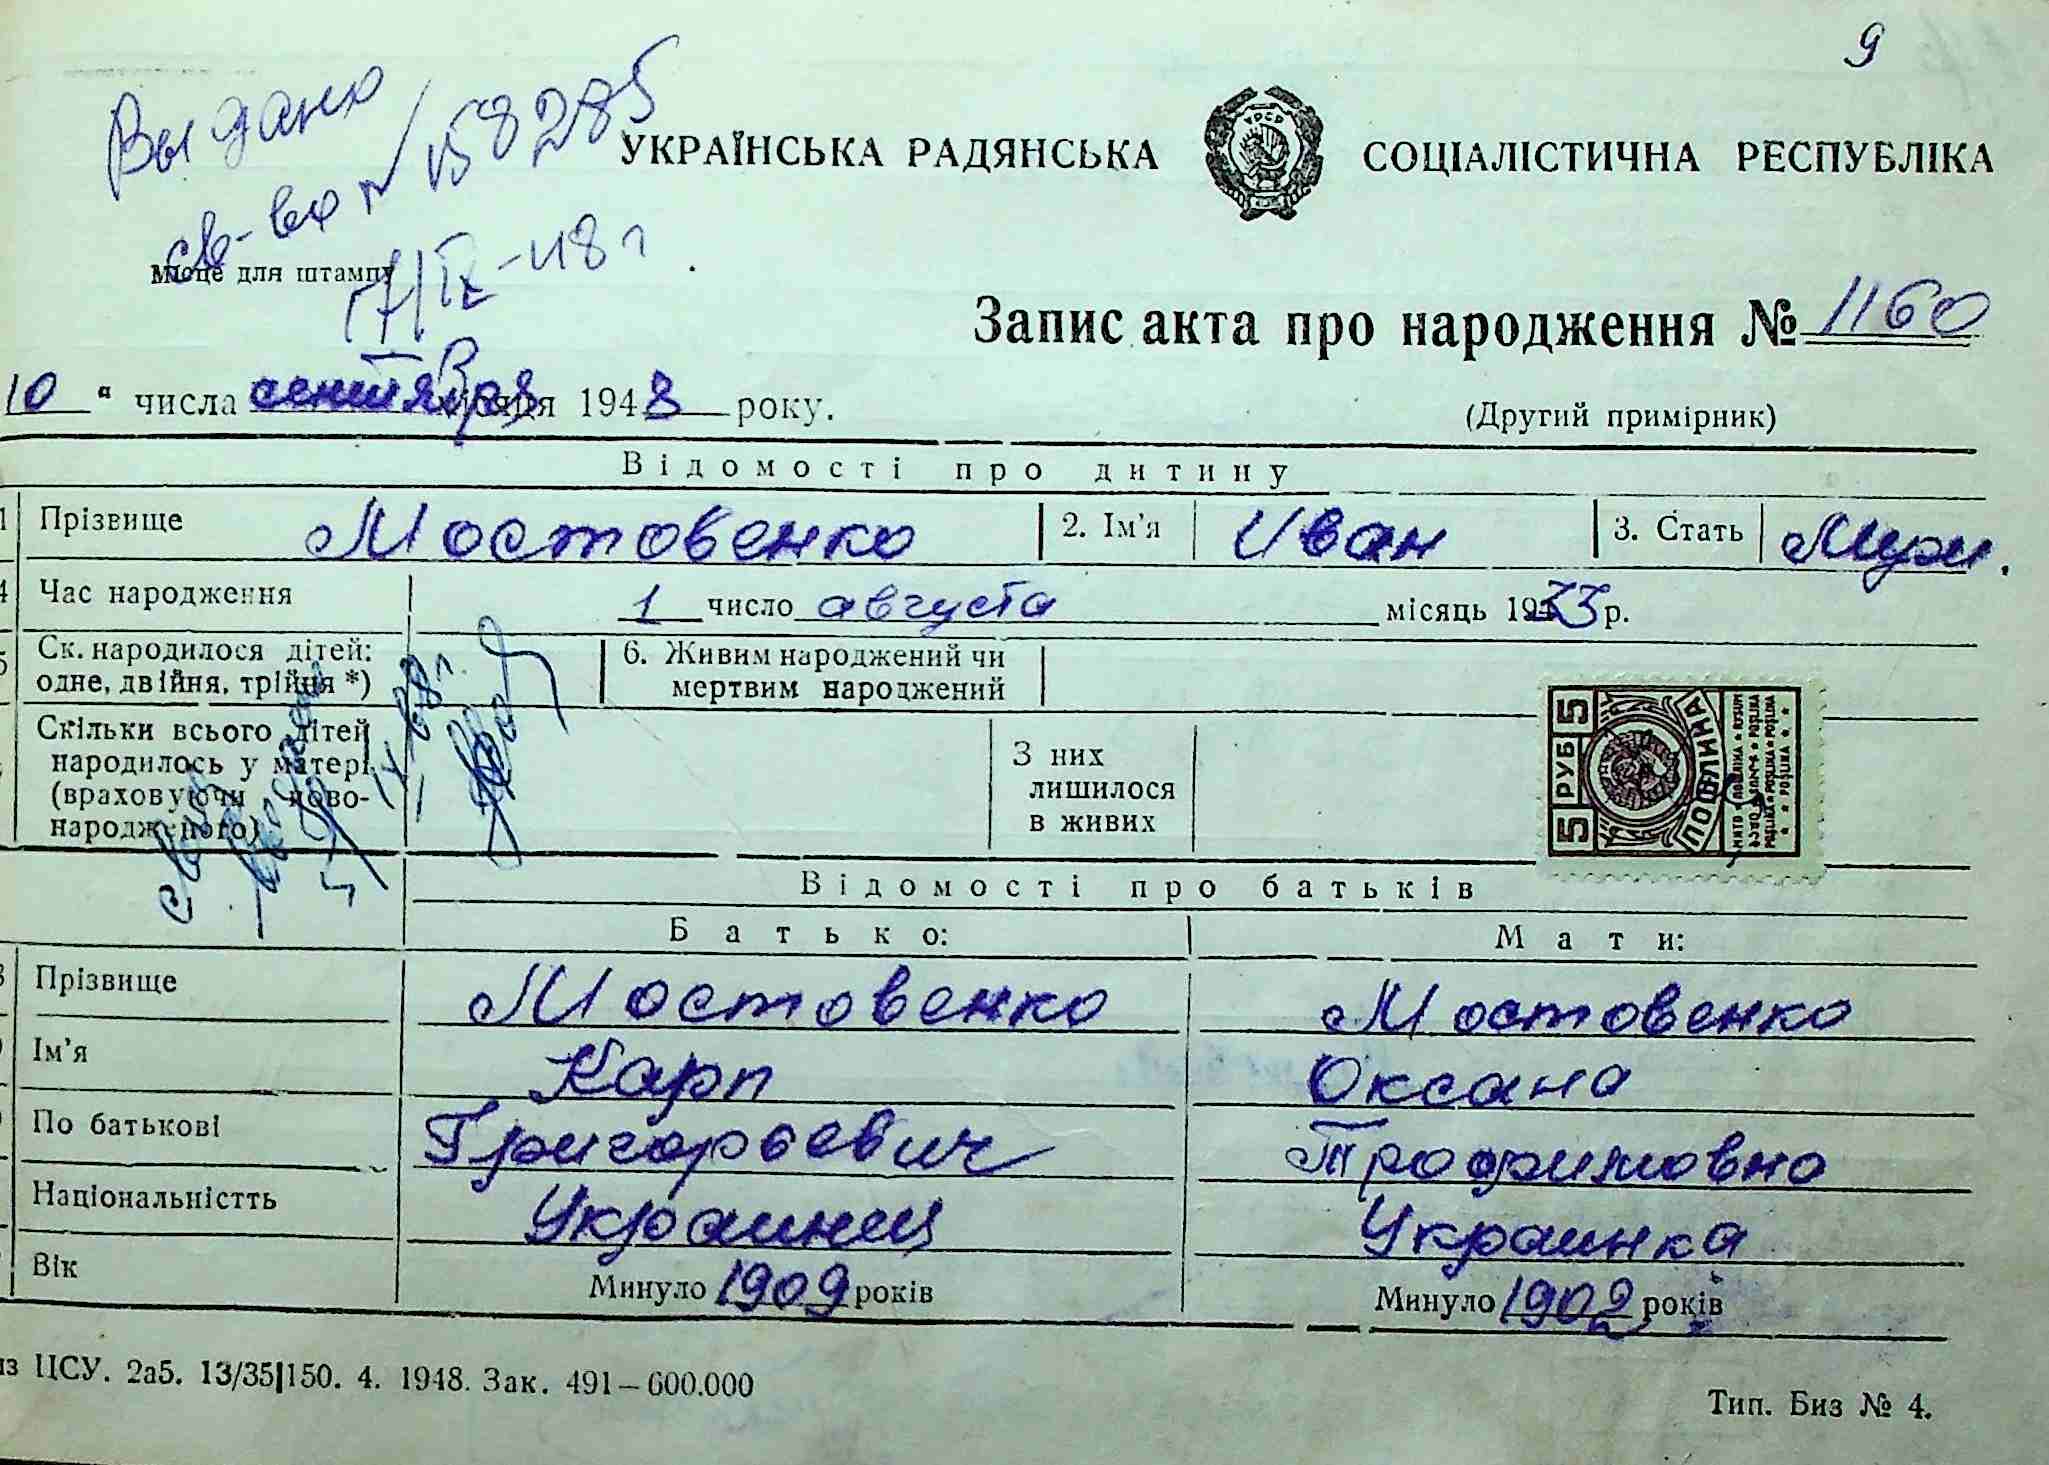 9
Выдано
св-во № 158285
17/IX-48 г
УКРАЇНСЬКА РАДЯНСЬКА СОЦІАЛІСТИЧНА РЕСПУБЛІКА
УРСР
Місце для штампу
Запис акта про народження № 1160
10 " числа сентября місяця 1948 року.
(Другий примірник)
Відомості про дитину
1 Прізвище Мостовенко 2. Ім'я Иван 3. Стать Муж.
4 Час народження 1 число августа місяць 1933 р.
5 Ск. народилося дітей: одне, двійня, трійня *)
6. Живим народжений чи мертвим народжений
Скільки всього дітей народилось у матері (враховуючи новонародженого)
З них лишилося в живих
5 РУБ 5
ПОШЛИНА
Відомості про батьків
Батько: Мати:
8 Прізвище Мостовенко Мостовенко
Ім'я Карп Оксана
По батькові Григорьевич Трофимовна
Національністть Украинец Украинка
Вік Минуло 1909 років Минуло 1902 років
из ЦСУ. 2а5. 13/35|150. 4. 1948. Зак. 491–600.000
Тип. Биз № 4.